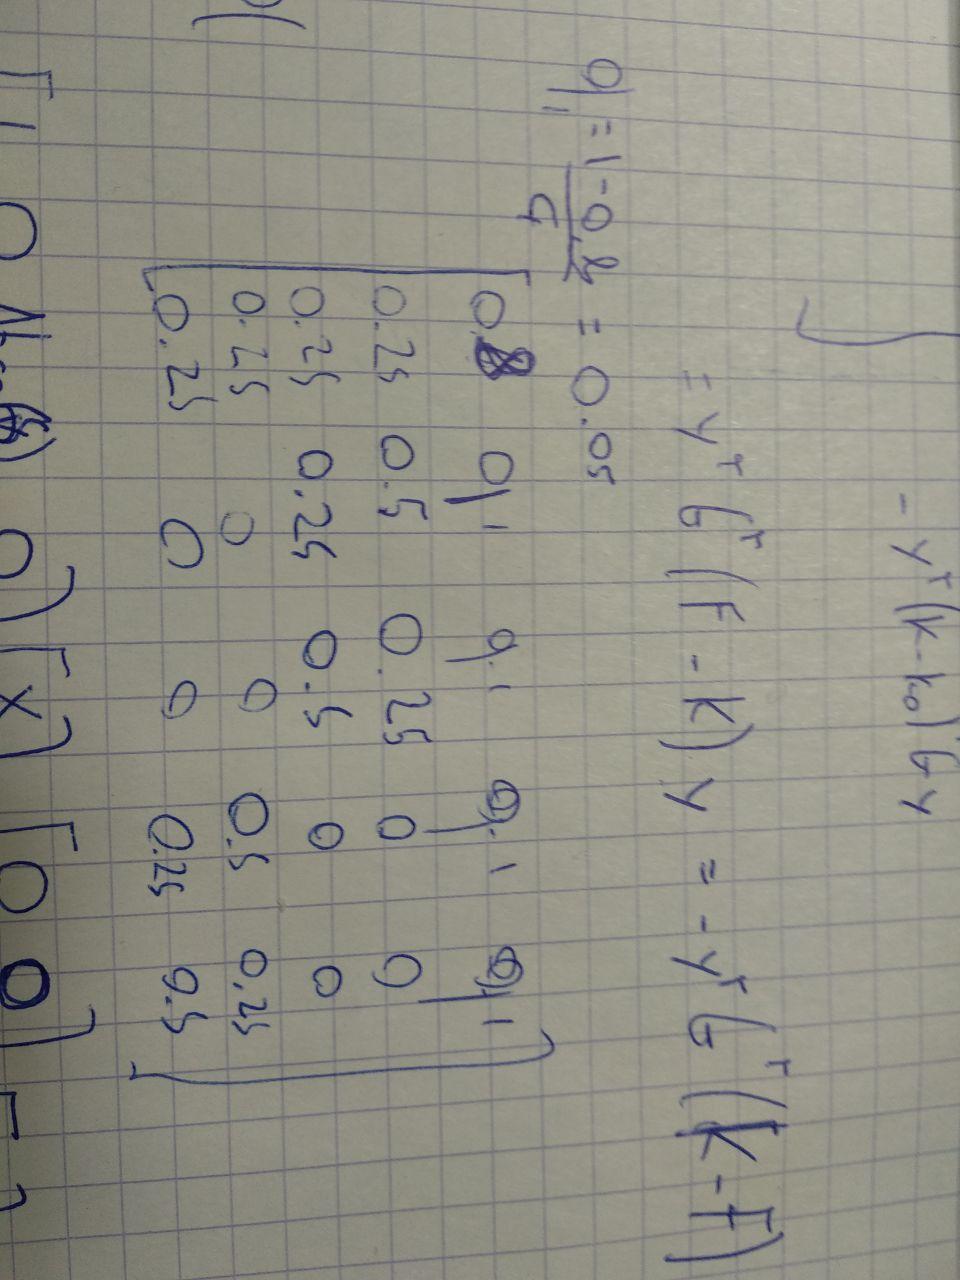 - yᵀ(K-K₀)ᵀGy
= yᵀ Gᵀ (F - K) y = - yᵀ Gᵀ (K - F)
q₁ = (1-0.8)/4 = 0.05
[ 0.8 q₁ q₁ q₁ q₁ ]
0.25 0.5 0.25 0 0
0.25 0.25 0.5 0 0
0.25 0 0 0.5 0.25
0.25 0 0 0.25 0.5
[ 1 0 0 ] [ x ] [ 0 0 ]